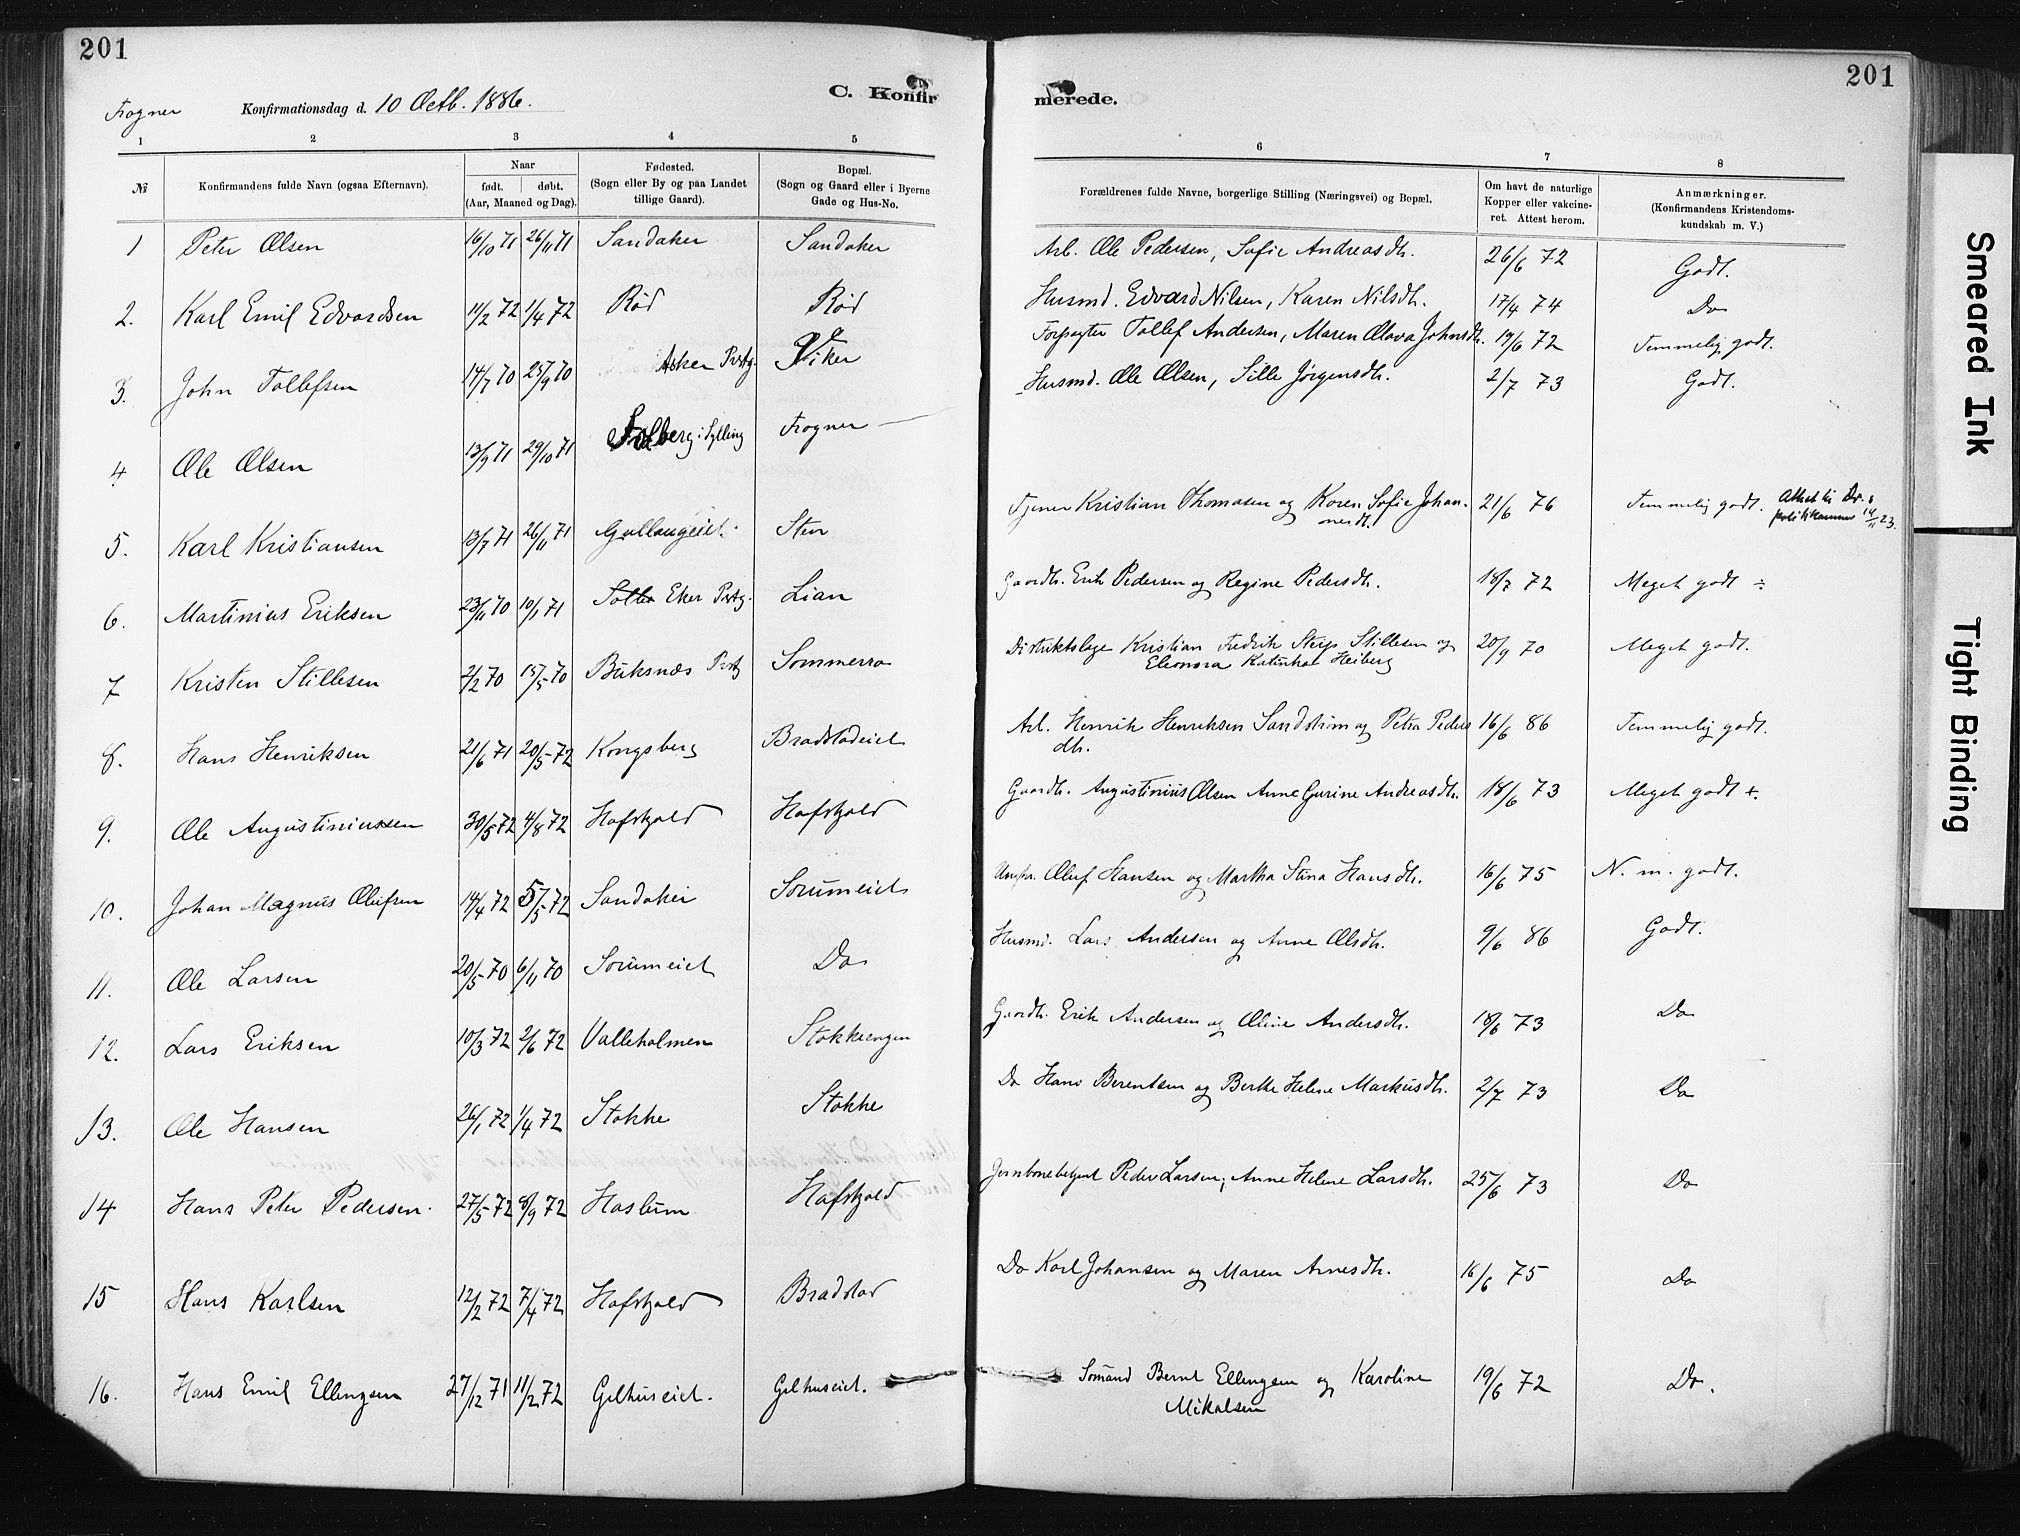 201
201
Frogner Konfirmationsdag d. 10 Octb. 1886.
C. Konfirmerede.
1 2 3 4 5 6 7 8
№ Konfirmandens fulde Navn (ogsaa Efternavn). Naar født. døbt. (Aar, Maaned og Dag). Fødested. (Sogn eller By og paa Landet tillige Gaard). Bopæl. (Sogn og Gaard eller i Byerne Gade og Hus-No. Forældrenes fulde Navne, borgerlige Stilling (Næringsvei) og Bopæl. Om havt de naturlige Kopper eller vakcineret. Attest herom. Anmærkninger. (Konfirmandens Kristendomskundskab m. V.)
1 Peter Olsen 16/10 71 26/11 71 Sandaker Sandaker Arb. Ole Pedersen, Sofie Andreasdh. 26/6 72 Godt.
2. Karl Emil Edvardsen 11/2 72 1/4 72 Rød Rød Husmd. Edvard Nilsen, Karen Nilsdh. 17/4 74 Do
3. John Tollefsen 14/7 70 25/9 70 Asker Prstg. Viker Forpagter Tollef Andersen, Maren Olava Johnsdh. 19/6 72 Temmelig godt.
4 Ole Olsen 13/9 71 29/10 71 Solberg i Sylling Frogner Husmd. Ole Olsen, Sille Jørgensdh. 2/7 73 Godt.
5. Karl Kristiansen 13/7 71 26/11 71 Gullaugeiet. Sten Tjener Kristian Thomasen og Karen Sofie Johannesdt. 21/6 76 Temmelig godt. Attest til Dr. politikammer 14/11 23.
6. Martinius Eriksen 23/11 70 10/1 71 Eker Prstg. Lian Gaardb. Erik Pedersen og Regine Pedersdh. 18/7 72 Meget godt ÷
7 Kristen Stillesen 2/2 70 15/5 70 Buksnæs Prstg Sommerro Distriktslæge Kristian Fredrik Stillesen og Eleonora Katinka Heiberg 20/9 70 Meget godt.
8. Hans Henriksen 21/6 71 20/5 72 Kongsberg Bradstadeiet Arb. Henrik Henriksen Sandstrøm og Petra Pedersdh. 16/6 86 Temmelig godt.
9. Ole Augustiniussen 30/5 72 4/8 72 Hafskjold Hafskjold Gaardb. Augustinius Olsen Anne Gurine Andreasdh. 18/6 73 Meget godt +.
10. Johan Magnus Olufsen 14/4 72 5/5 72 Sandaker Sørumeiet Ungkr. Oluf Hansen og Martha Stina Hansdh. 16/6 75 N. m. godt.
11. Ole Larsen 20/5 70 6/11 70 Sørumeiet Do Husmd. Lars Andersen og Anne Olsdh. 9/6 86 Godt.
12. Lars Eriksen 10/3 72 2/6 72 Valleholmen Stokkeengen Gaardb. Erik Andersen og Oline Andersdh. 18/6 73 Do
13. Ole Hansen 26/1 72 1/4 72 Stokke Stokke Do Hans Berentsen og Berthe Helene Markusdh. 2/7 73 Do
14 Hans Peter Pedersen. 27/5 72 8/9 72 Haslum Hafskjold Jernbanebetjent Peder Larsen, Anne Helene Larsdh. 25/6 73 Do
15 Hans Karlsen 12/2 72 7/4 72 Hafskjold Bradstad Do Karl Johansen og Maren Arnesdh. 16/6 75 Do
16. Hans Emil Ellingsen 27/12 71 11/2 72 Gilhuseiet. Gilhuseiet. Sømand Bernt Ellingsen og Karoline Mikalsen 19/6 72 Do.
Smeared Ink
Tight Binding